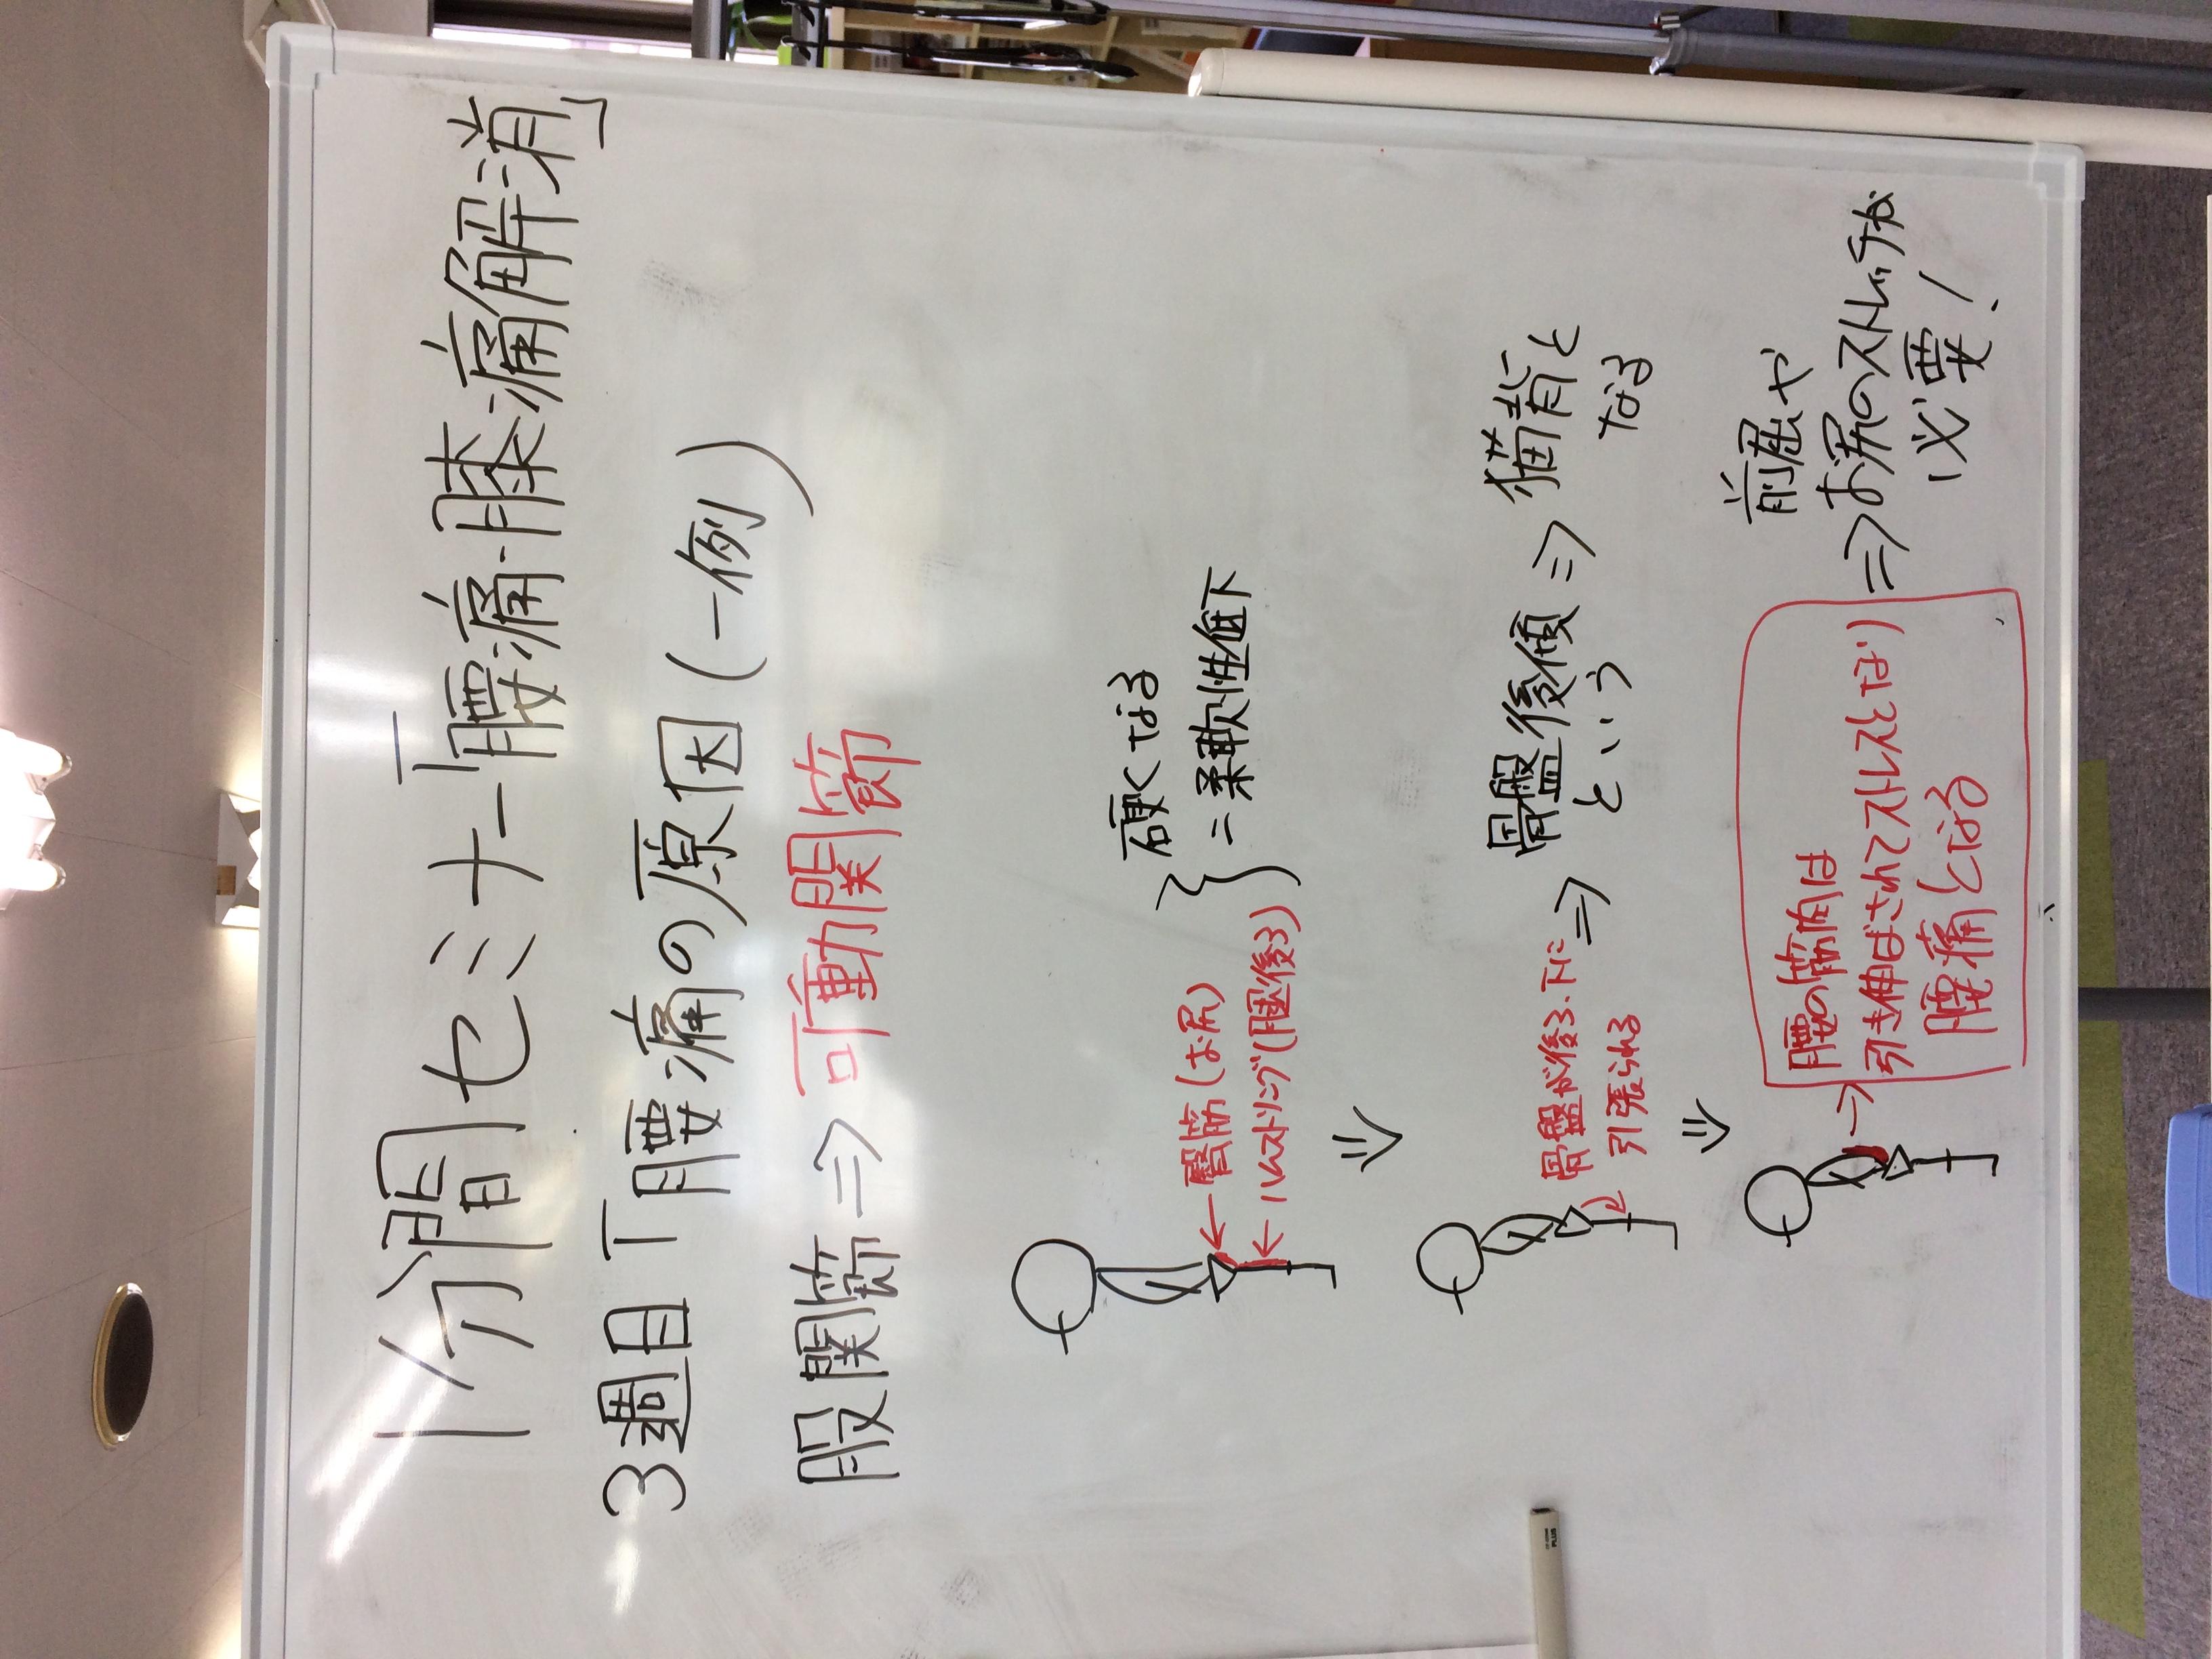 1分間セミナー「腰痛・膝痛解消」
3週目「腰痛の原因(一例)
股関節⇒可動関節
←臀筋(お尻)
←ハムストリング(腿後ろ)
硬くなる
=柔軟性低下
⇓
骨盤が後ろ・下に
引張られる
⇒骨盤後傾
という
⇒猫背と
なる
⇓
→腰の筋肉は
引き伸ばされてストレスとなり
腰痛となる
前屈や
⇒お尻のストレッチが
必要!
PLUS